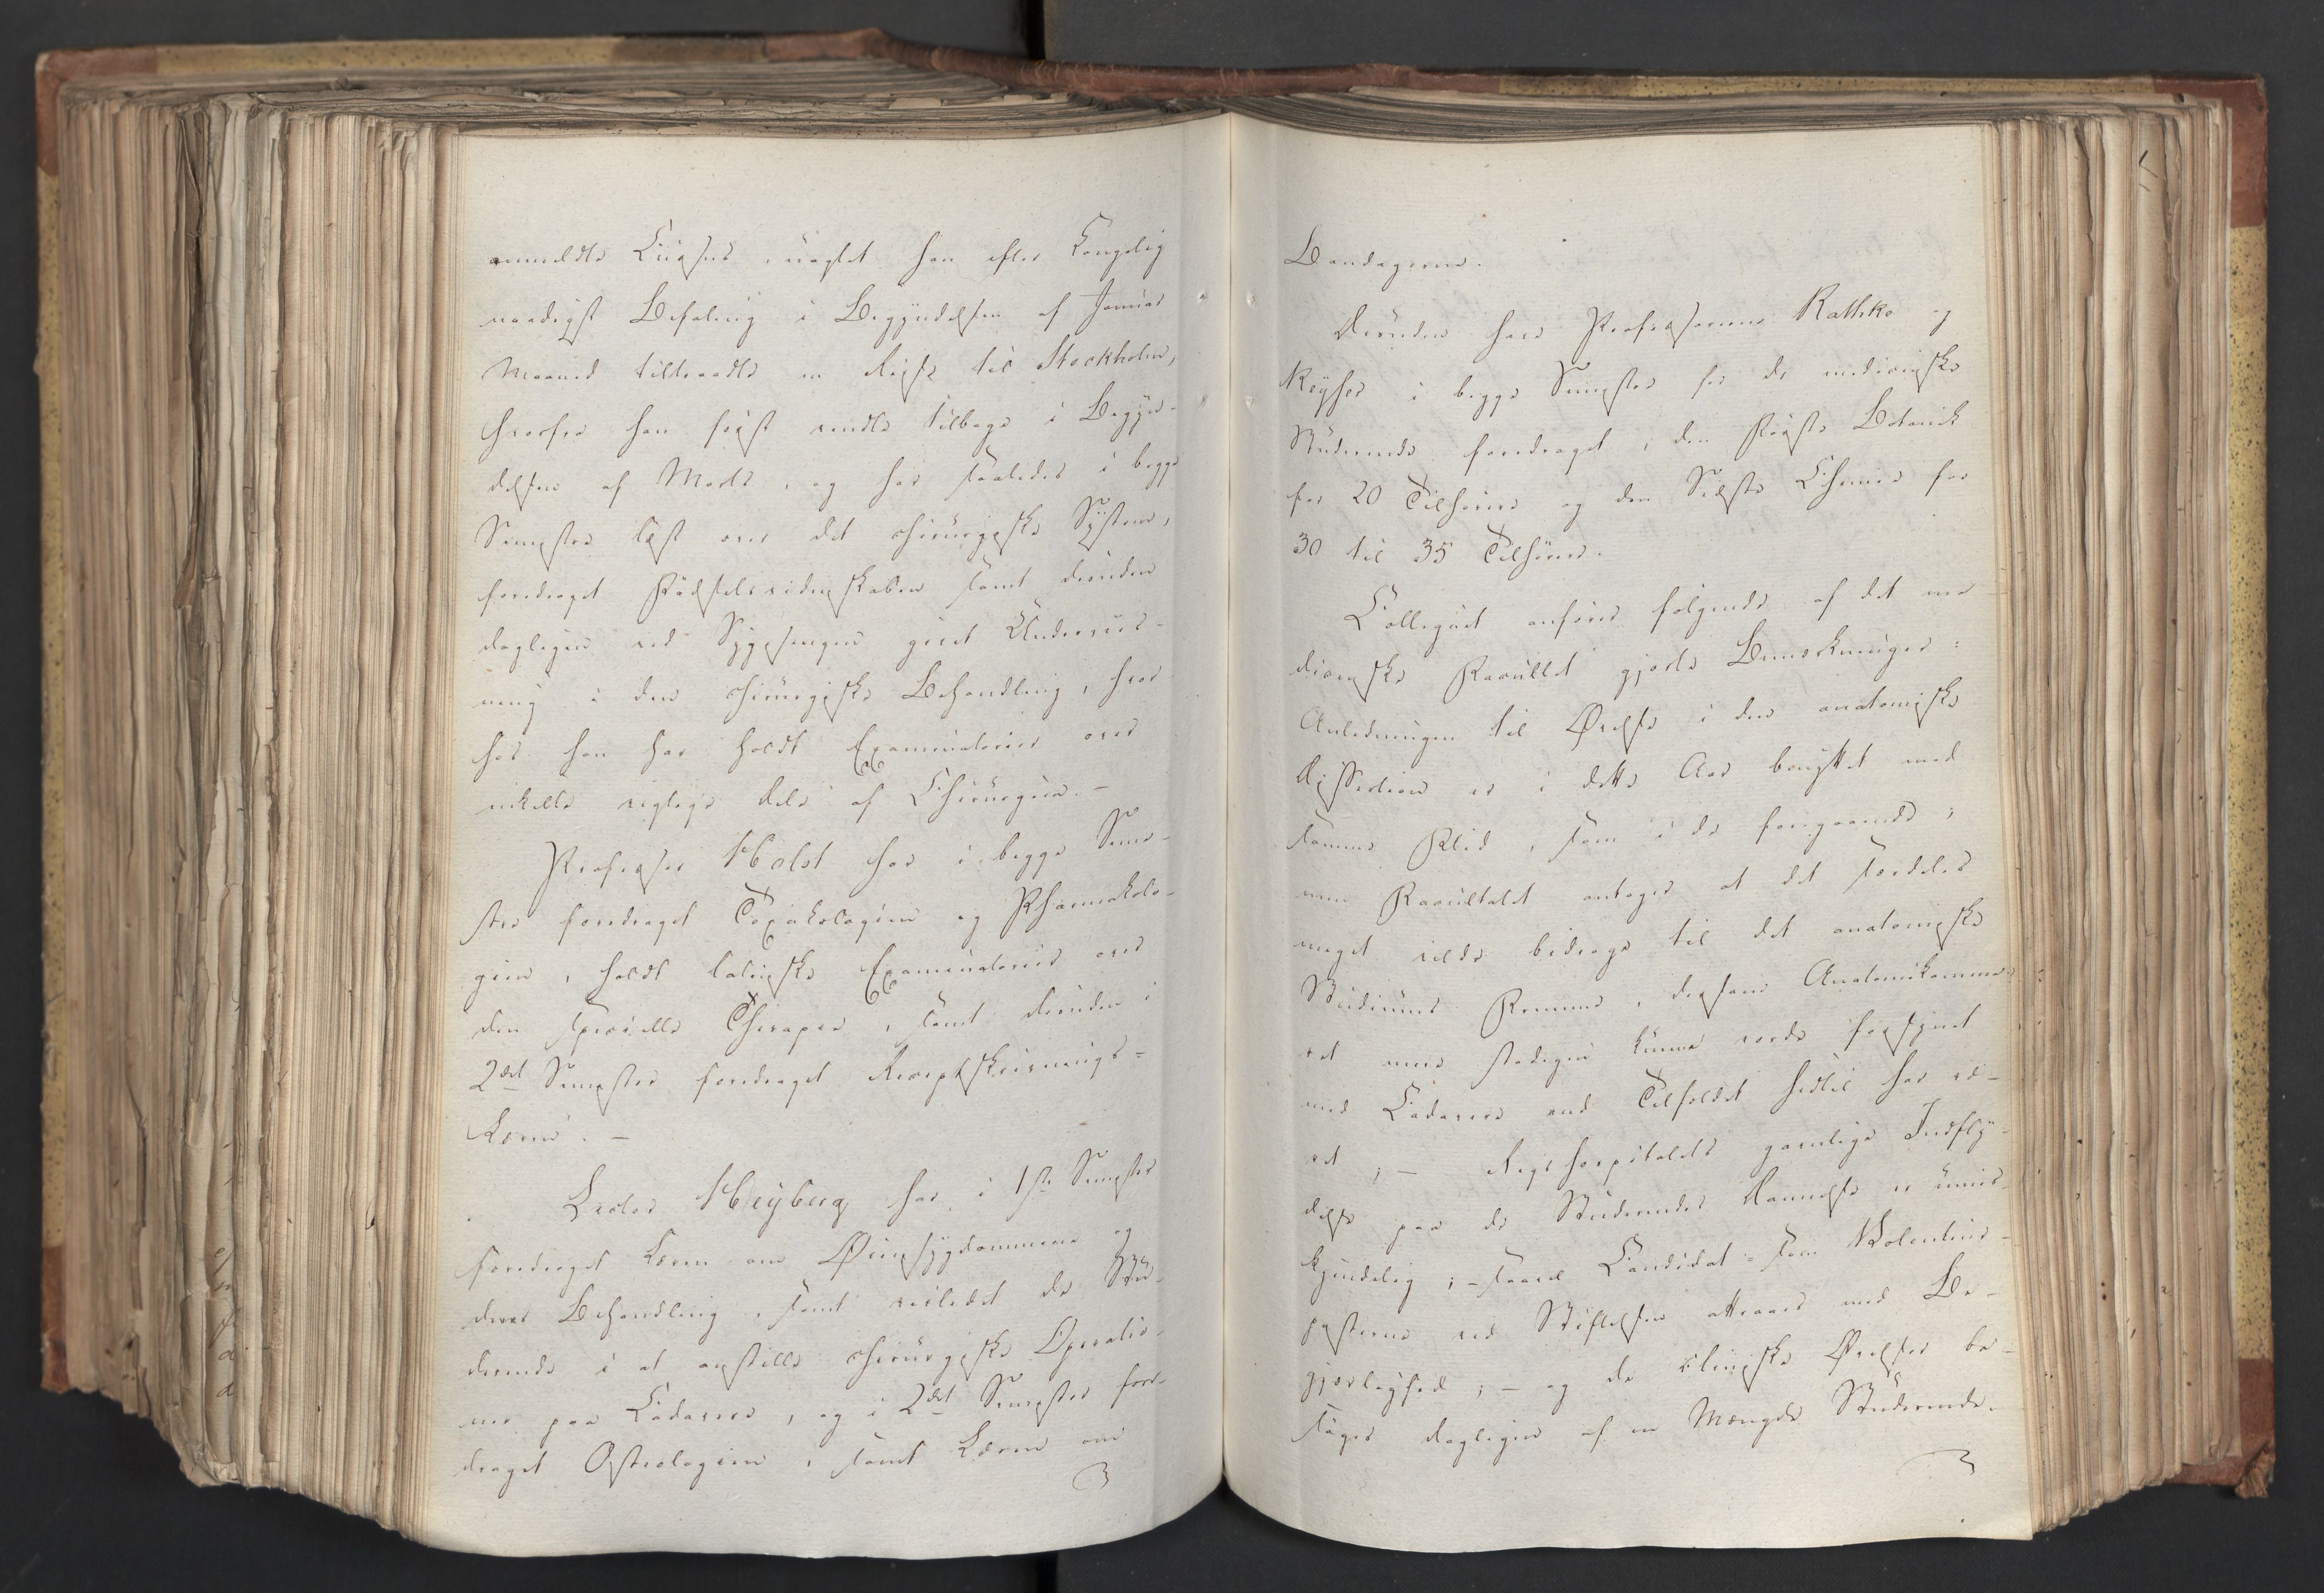 anmeldte Cursus, uagtet han efter Kongelig
naadigst Befaling i Begyndelsen af Januar
Maaned tiltraadte en Reise til Stockholm,
hvorfra han først vendte tilbage i Begyn-
delsen af Marts, og har saaledes i begge
Semestre læst over det chirurgiske System,
foredraget Fødselsvidenskaben samt desuden
dagligen ved Sygesengen givet Underviis-
ning i den chirurgiske Behandling, hvor-
hos han har holdt Examinatorier over
enkelte vigtige Dele af Chirurgien. –
Professor Holst har i begge Seme-
stre foredraget Toxikologien og Pharmakolo-
gien, holdt latinske Examinatorier over
den specielle Therapie, samt desuden i
2det Semester foredraget Receptskrivnings-
Læren. –
Lector Heyberg har i 1ste Semester
foredraget Læren om Øiensygdommene og
deres Behandling, samt veiledet de Stu-
derende i at anstille chirurgiske Operatio-
ner paa Cadavere, og i 2det Semester fore-
draget Osteologien, samt Læren om
Bandagerne.
Desuden have Professorerne Rathke og
Keyser i begge Semestre for de medicinske
Studerende foredraget, den Første Botanik
for 20 Tilhørere og den Sidste Chemie for
30 til 35 Tilhørere.
Collegiet anfører følgende af det me-
dicinske Facultet gjorte Bemærkninger:
Anledningen til Øvelse i den anatomiske
Dissection er i dette Aar benyttet med
samme Flid, som i de foregaaende;
men Facultetet antager at det særdeles
meget vilde bidrage til det anatomiske
Studiums Fremme, dersom Anatomikamme-
ret mere stadigen kunne vorde forsynet
med Cadavere end Tilfældet hidtil har væ-
ret; – Rigshospitalets gavnlige Indfly-
delse paa de Studerendes Dannelse er umis-
kjendelig; – saavel Candidat- som Volontair-
posterne ved Stiftelsen attraaes med Be-
gjerlighed; – og de kliniske Øvelser be-
søges dagligen af en Mængde Studerende.